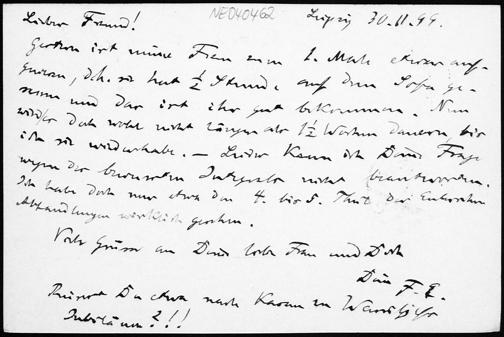 NE040462
Leipzig 30.11.99.
Lieber Freund!
Gestern ist meine Frau zum 1. Male etwas auf-
gewesen, d.h. sie hat ½ Stunde auf dem Sofa ge-
sessen und das ist ihr gut bekommen. Nun
wird es doch wohl nicht länger als 1½ Wochen dauern, bis
ich sie wiederhabe. — Leider kann ich Deine Frage
wegen der bewussten Integrale nicht beantworten.
Ich habe doch nur etwa den 4. bis 5. Theil der Eulerschen
Abhandlungen wirklich gesehen.
Viele Grüsse an Deine liebe Frau und Dich
Dein F. E.
Reisest Du etwa nach Kasan zu
Jubiläum?!!!